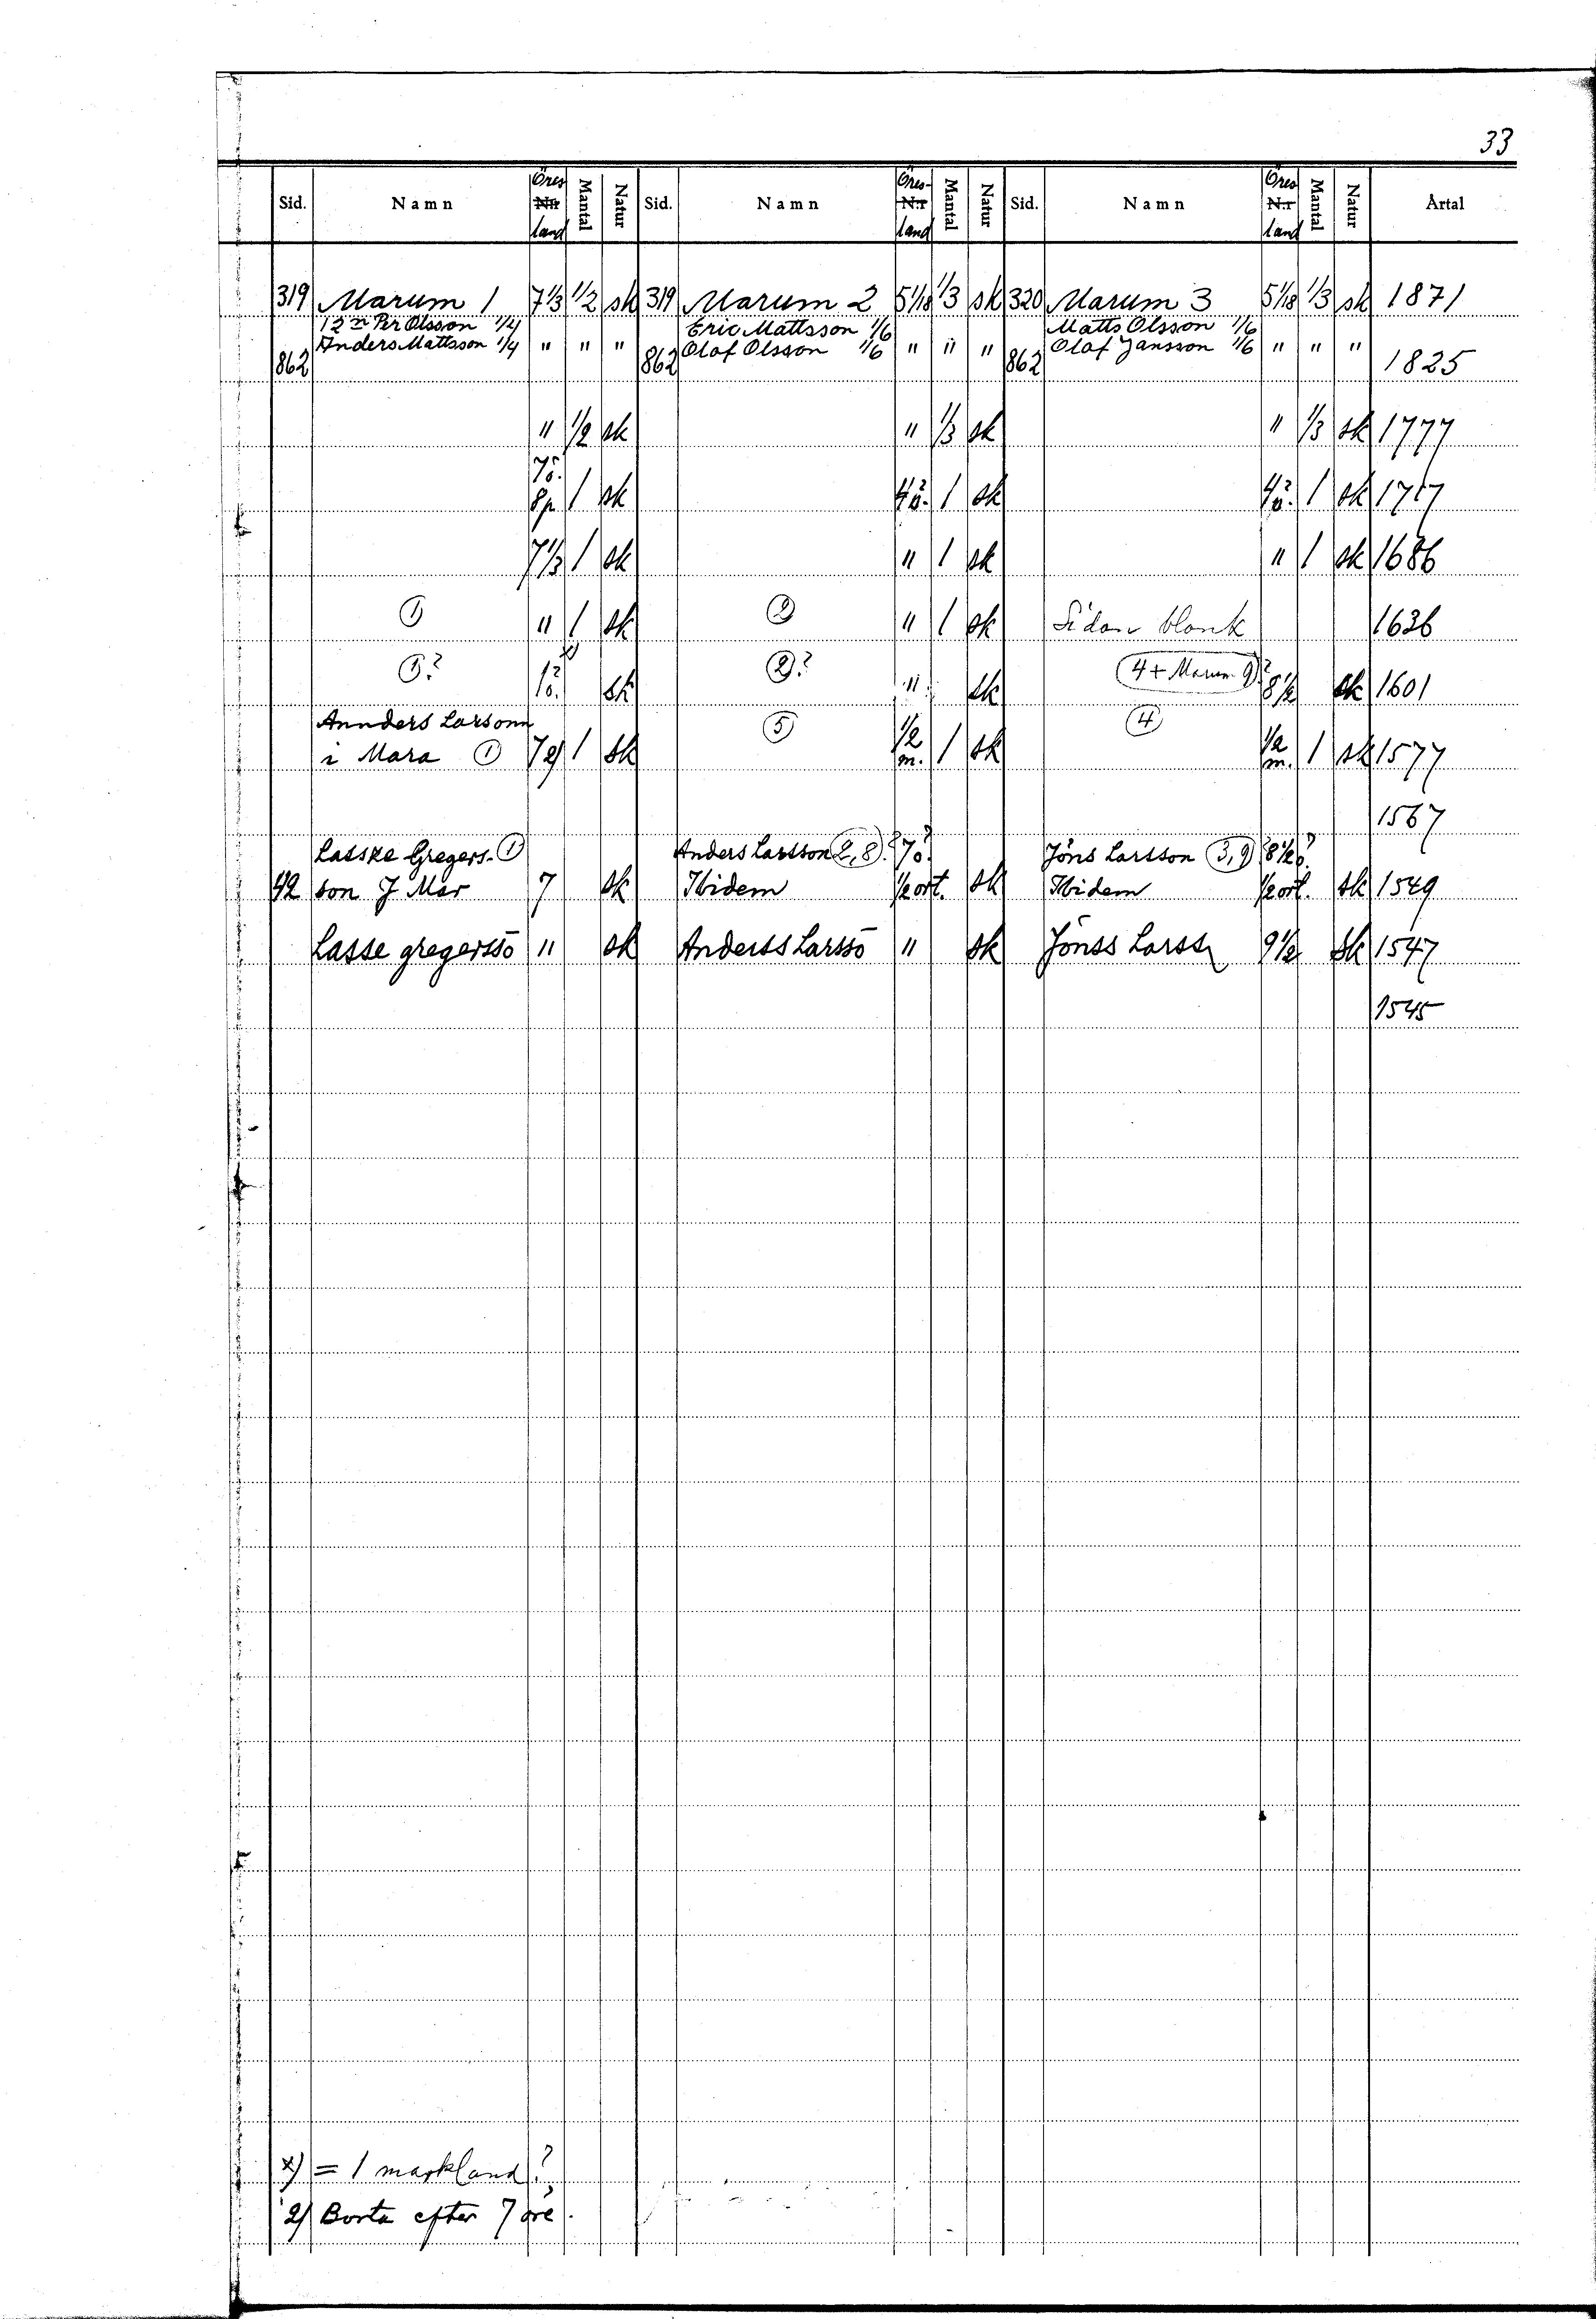 33
Sid. Namn Öres Nr land Mantal Natur Sid. Namn Öres- Nr land Mantal Natur Sid. Namn Öres Nr land Mantal Natur Årtal
319 Marum 1 7 1/3 1/2 sk 319 Marum 2 5 1/18 1/3 sk 320 Marum 3 5 1/18 1/3 sk 1871
Per Olsson 1/4 Eric Mattsson 1/6 Matts Olsson 1/6
862 Anders Mattsson 1/4 " " " 862 Olof Olsson 1/6 " " " 862 Olof Jansson 1/6 " " " 1825
" 1/2 sk " 1/3 sk " 1/3 sk 1777
7ö. 8p. 1 sk 4ö. 1 sk 4ö. 1 sk 1717
7 1/3 1 sk " 1 sk " 1 sk 1686
1 " 1 sk 2 " 1 sk Sidan blank 1636
1? 1ö. x) sk 2? " sk 4 + Marum 9? 8 1/2 sk 1601
Annders Larsonn
i Mara 1 7 2) 1 sk 5 1/2 m. 1 sk 4 1/2 m. 1 sk 1577
1567
Lasske Gregers- 1 Anders Larsson 2, 8. 7ö. Jöns Larsson 3, 9 8 1/2 ö.
42 son J Mar 7 sk Ibidem 1/2 ort. sk Ibidem 1/2 ort. sk 1549
Lasse gregerssö " sk Anderss Larssö " sk Jönss Larss 9 1/2 sk 1547
1545
x) = 1 markland?
2) Borta efter 7 öre.